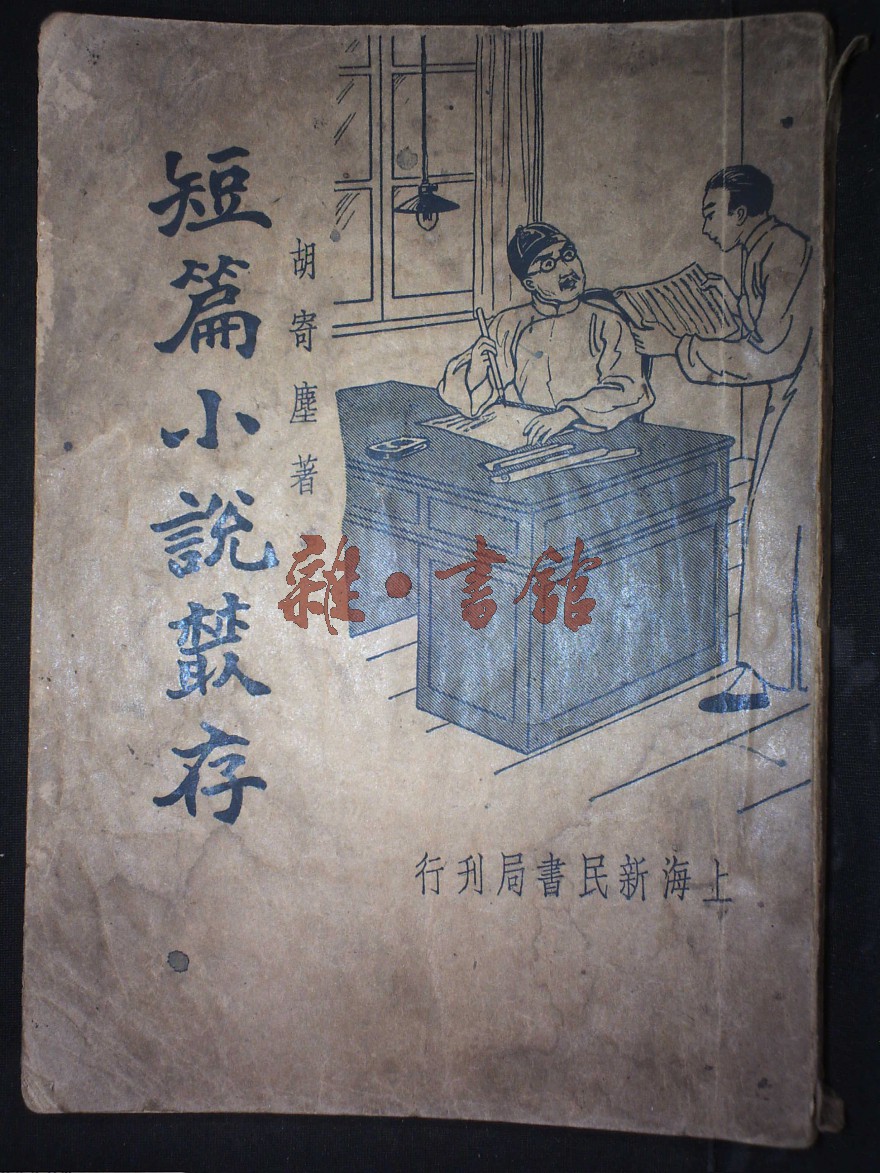 短篇小說叢存
胡寄塵著
上海新民書局刊行
雜·書館